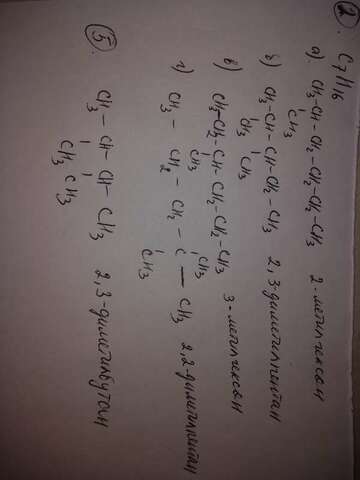 2. C7H16
а) CH3-CH-CH2-CH2-CH2-CH3 2-метилгексан
CH3
б) CH3-CH-CH-CH2-CH3 2,3-диметилпентан
CH3 CH3
в) CH3-CH2-CH-CH2-CH2-CH3 3-метилгексан
CH3
г) CH3 - CH2 - CH2 - C - CH3 2,2-диметилпентан
CH3
CH3
5.
CH3 - CH - CH - CH3 2,3-диметилбутан
CH3 CH3